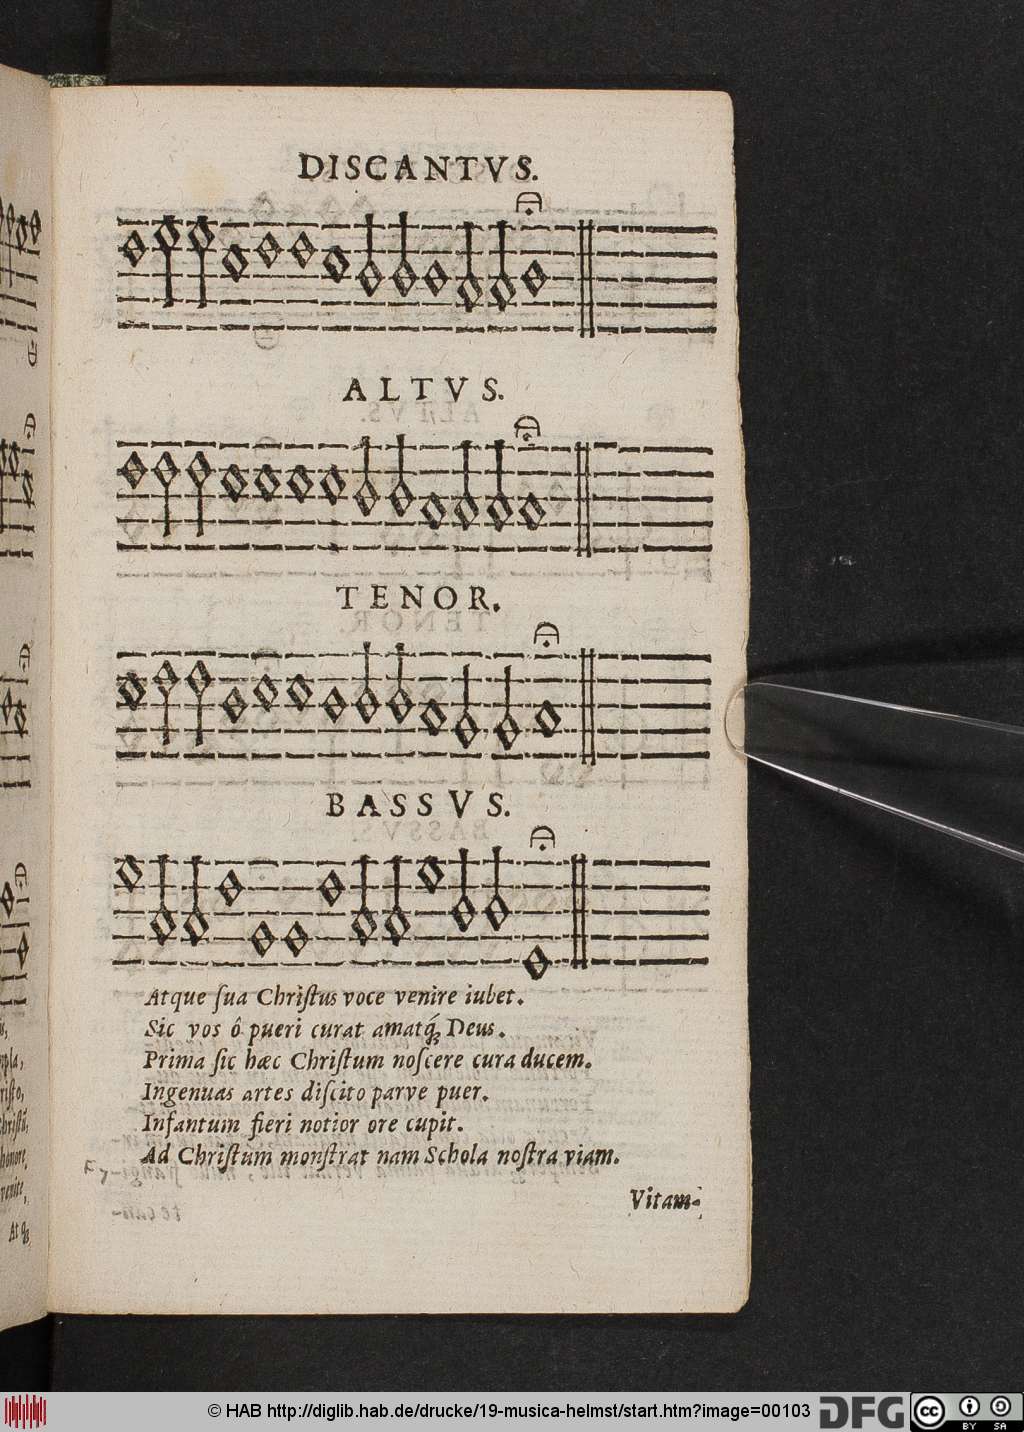 DISCANTVS.
ALTVS.
TENOR.
BASSVS.
Atque ſua Chriſtus voce venire iubet.
Sic vos ô pueri curat amatq́; Deus.
Prima ſic hæc Chriſtum noſcere cura ducem.
Ingenuas artes diſcito parve puer.
Infantum fieri notior ore cupit.
Ad Chriſtum monſtrat nam Schola noſtra viam.
Vitam-
© HAB http://diglib.hab.de/drucke/19-musica-helmst/start.htm?image=00103
DFG
cc
BY SA